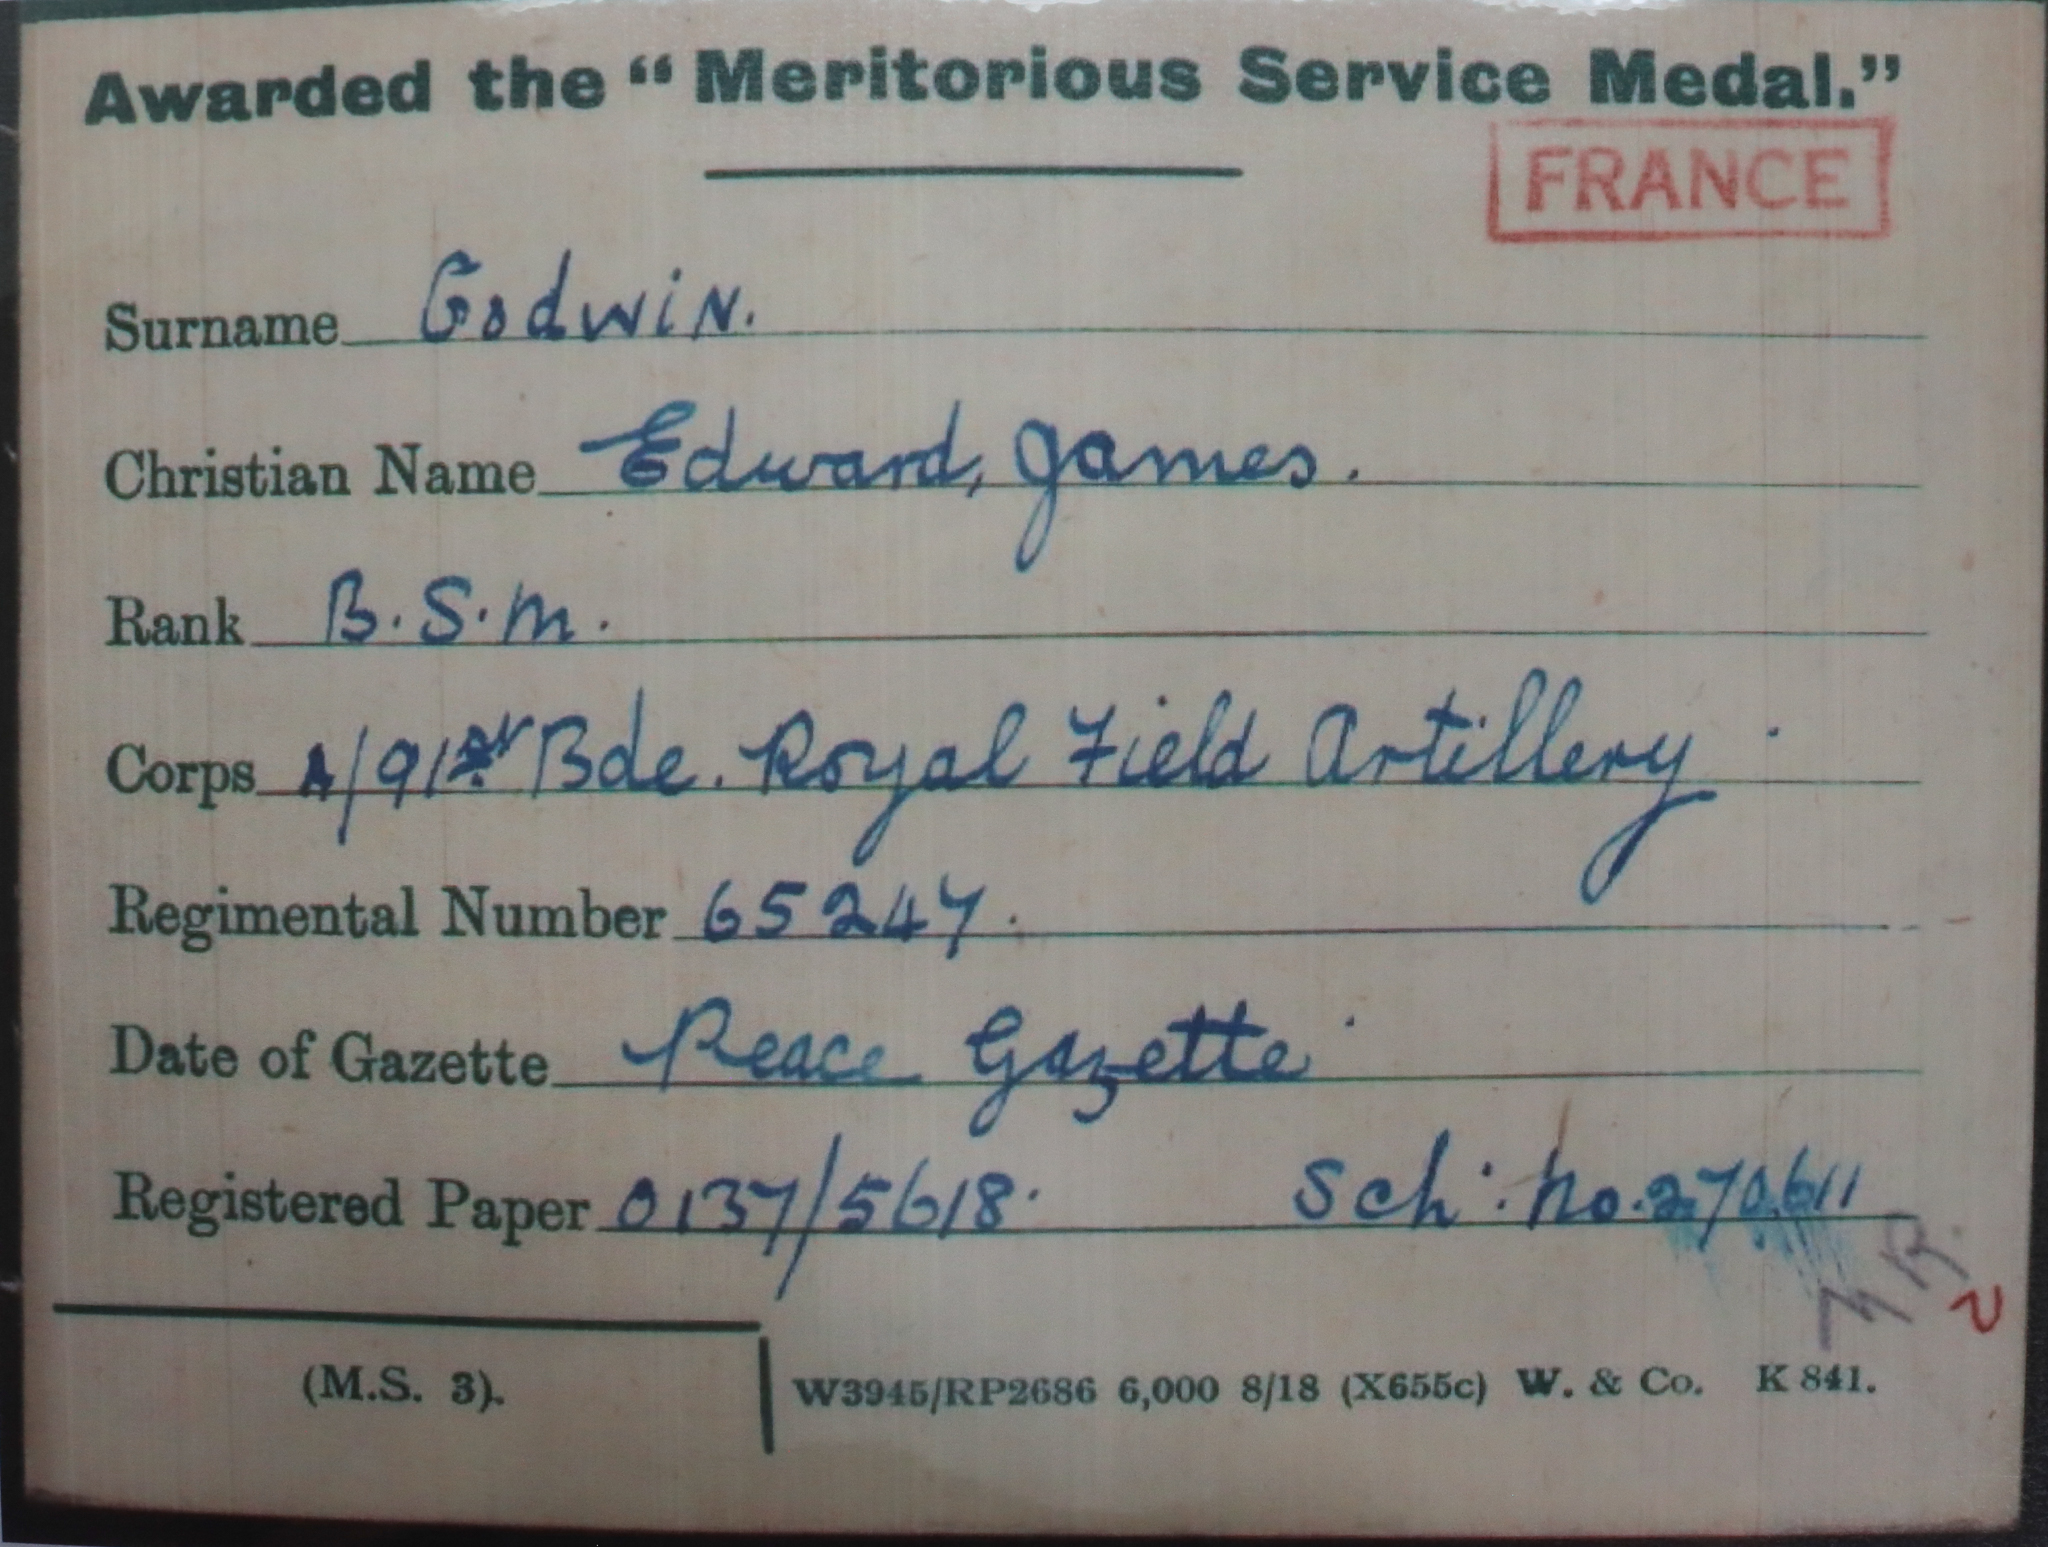 Awarded the "Meritorious Service Medal."
FRANCE
Surname Godwin.
Christian Name Edward, James.
Rank B.S.M.
Corps A/91st Bde. Royal Field Artillery.
Regimental Number 65247.
Date of Gazette Peace Gazette.
Registered Paper 0137/5618. Sch: No. 270611
MR
2
(M.S. 3).
W3945/RP2686 6,000 8/18 (X655c) W. & Co. K 841.